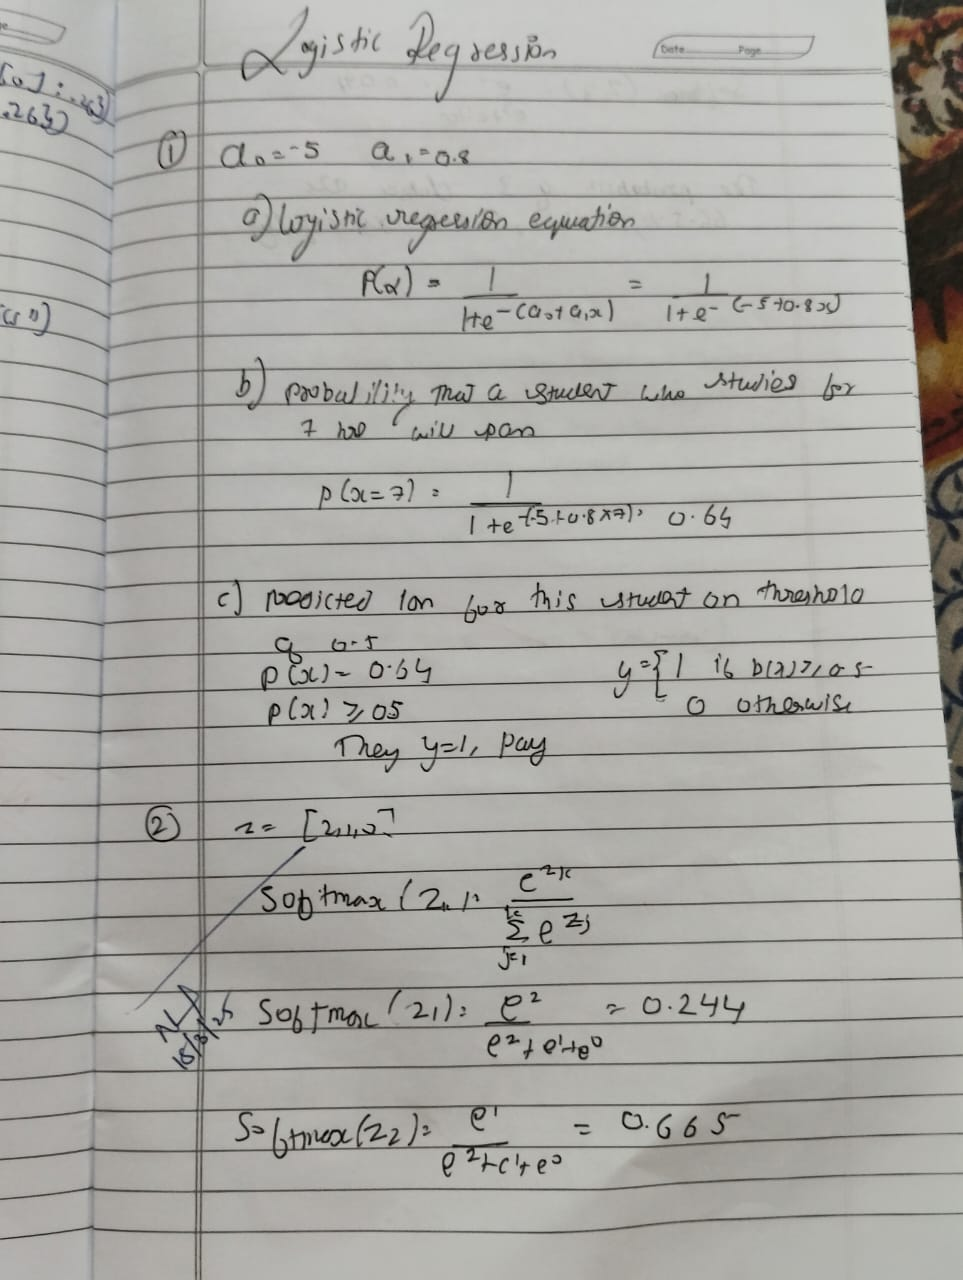 Logistic Regression
Date Page
.263
.263)
① a₀=-5 a₁=0.8
a) logistic regression equation
P(x) = 1/(1+e^-(a₀+a₁x)) = 1/(1+e^-(-5+0.8x))
b) probability that a student who studies for
7 hrs will pass
p(x=7) = 1/(1+e^-(-5+0.8×7)) = 0.64
c) for this student on threshold
of 0.5
p(x) = 0.64 y={1 if p(x)≥0.5
p(x) ≥ 05 0 otherwise
They y=1, Pay
② z = [2,1,0]
Softmax (Zₖ) = e^zk/(k Σ j=1 e^zj)
Softmax (z1) = e²/(e²+e¹+e⁰) = 0.244
15/8/25
Softmax(z2) = e¹/(e²+e¹+e⁰) = 0.665